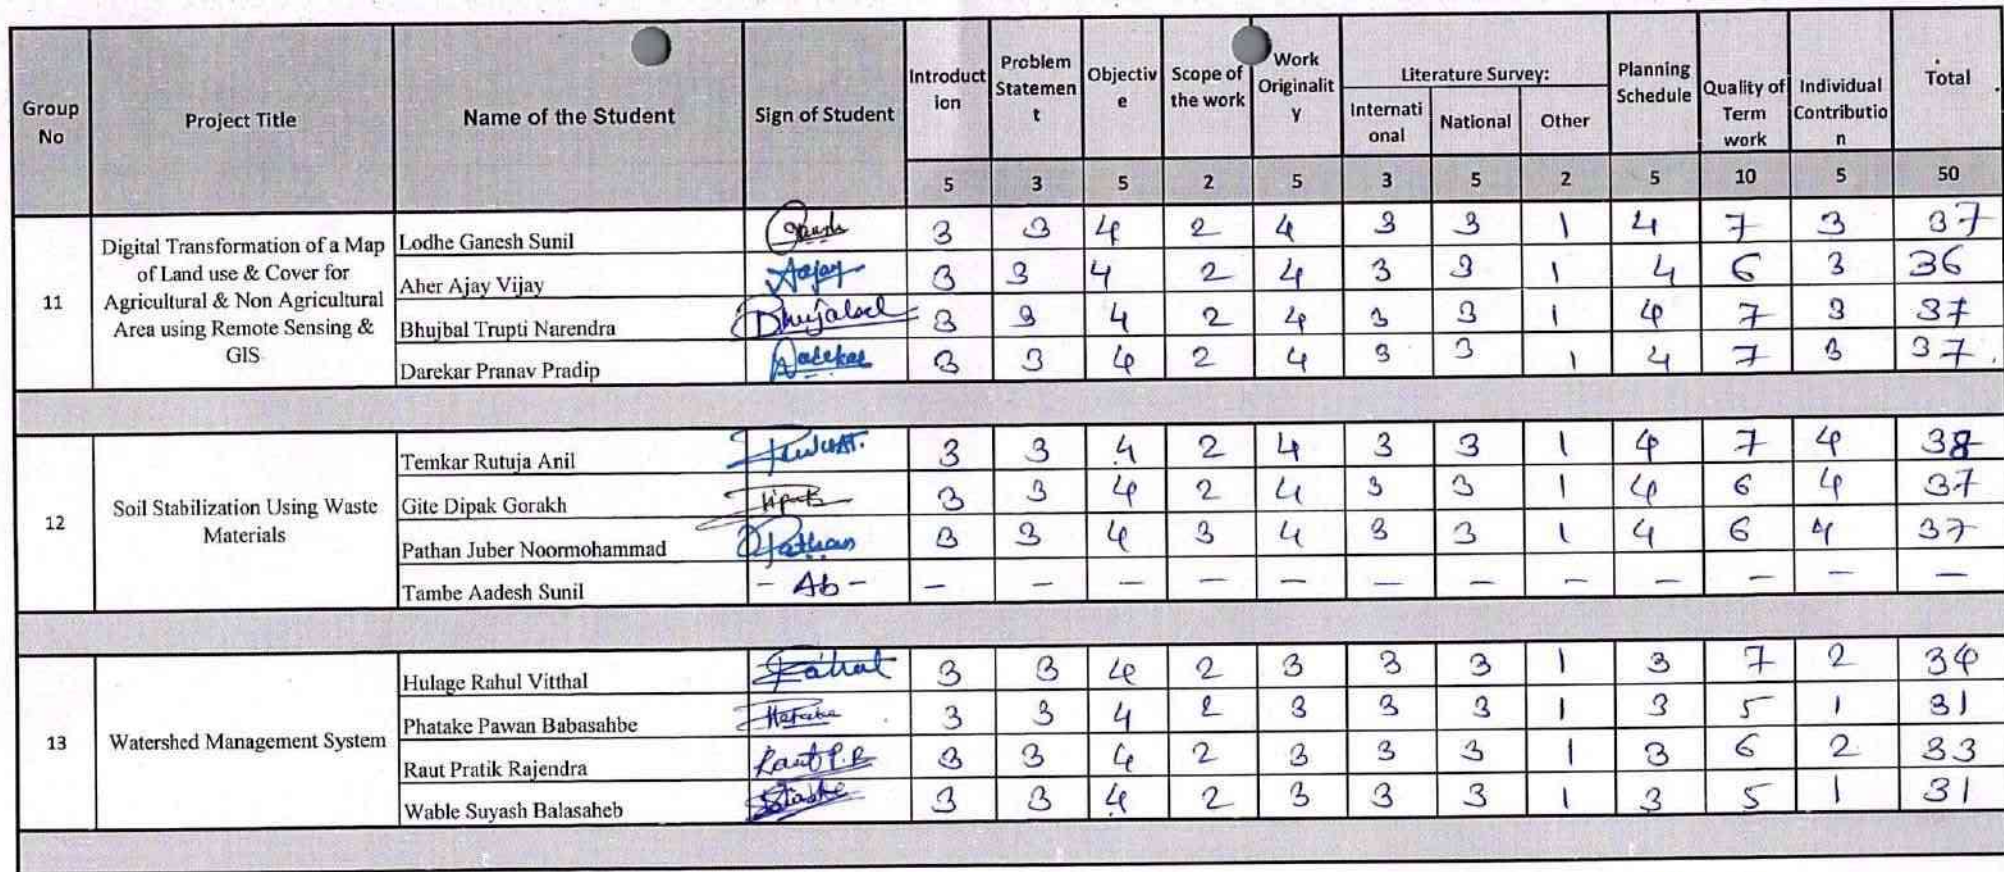 Group No
Project Title
Name of the Student
Sign of Student
Introduct
ion
Problem
Statemen
t
Objectiv
e
Scope of
the work
Work
Originalit
y
Literature Survey:
Internati
onal
National
Other
Planning
Schedule
Quality of
Term
work
Individual
Contributio
n
Total
5 3 5 2 5 3 5 2 5 10 5 50
11
Digital Transformation of a Map
of Land use & Cover for
Agricultural & Non Agricultural
Area using Remote Sensing &
GIS
Lodhe Ganesh Sunil 3 3 4 2 4 3 3 1 4 7 3 37
Aher Ajay Vijay Aajay 3 3 4 2 4 3 3 1 4 6 3 36
Bhujbal Trupti Narendra 3 3 4 2 4 3 3 1 4 7 3 37
Darekar Pranav Pradip 3 3 4 2 4 3 3 1 4 7 3 37
12
Soil Stabilization Using Waste
Materials
Temkar Rutuja Anil 3 3 4 2 4 3 3 1 4 7 4 38
Gite Dipak Gorakh 3 3 4 2 4 3 3 1 4 6 4 37
Pathan Juber Noormohammad Pathan 3 3 4 3 4 3 3 1 4 6 4 37
Tambe Aadesh Sunil - Ab - - - - - - - - - - - - -
13
Watershed Management System
Hulage Rahul Vitthal Rahul 3 3 4 2 3 3 3 1 3 7 2 34
Phatake Pawan Babasahbe 3 3 4 2 3 3 3 1 3 5 1 31
Raut Pratik Rajendra Raut P.R 3 3 4 2 3 3 3 1 3 6 2 33
Wable Suyash Balasaheb 3 3 4 2 3 3 3 1 3 5 1 31